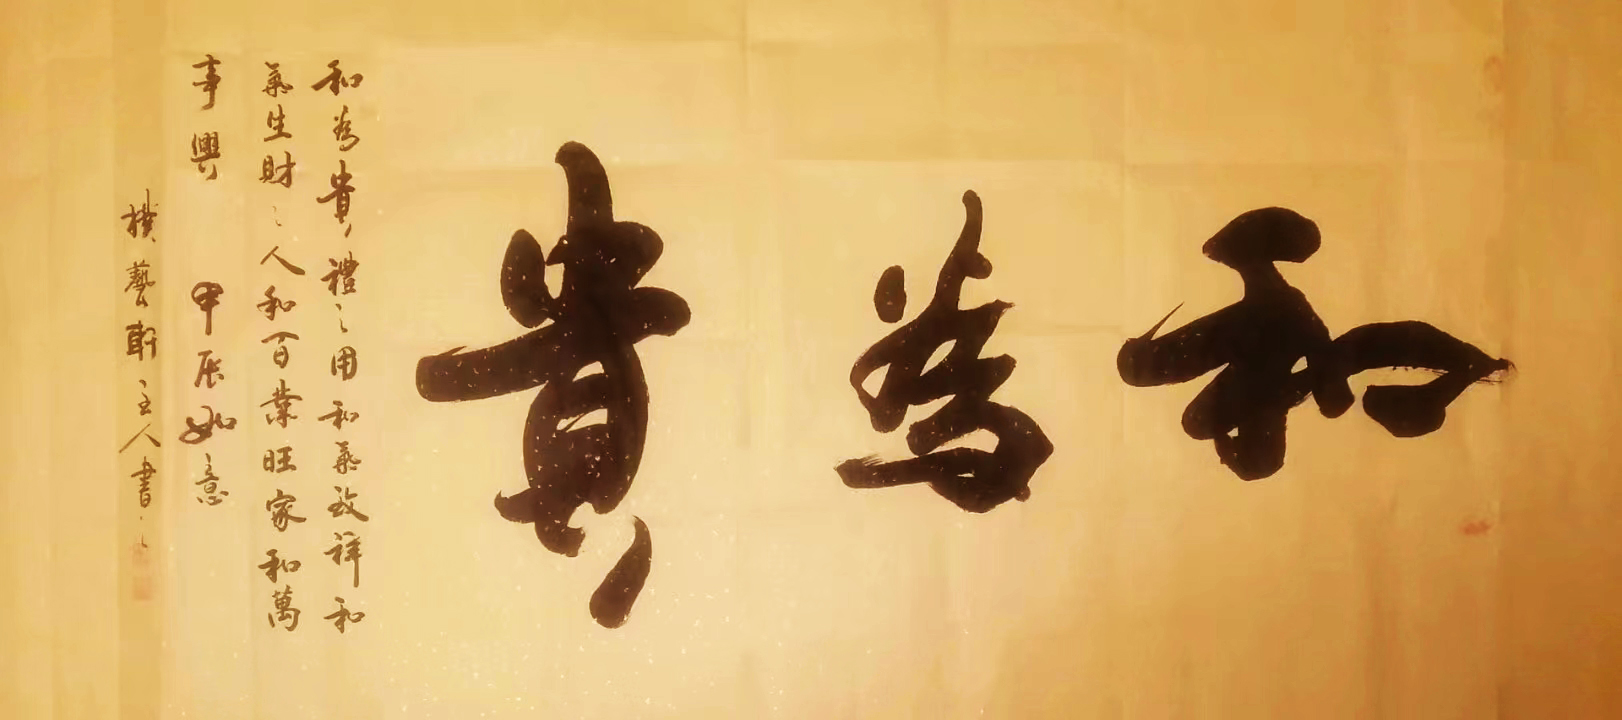 和為貴
和為貴禮之用和氣致祥和
氣生財之人和百業旺家和萬
事興 甲辰如意
樸藝軒主人書之